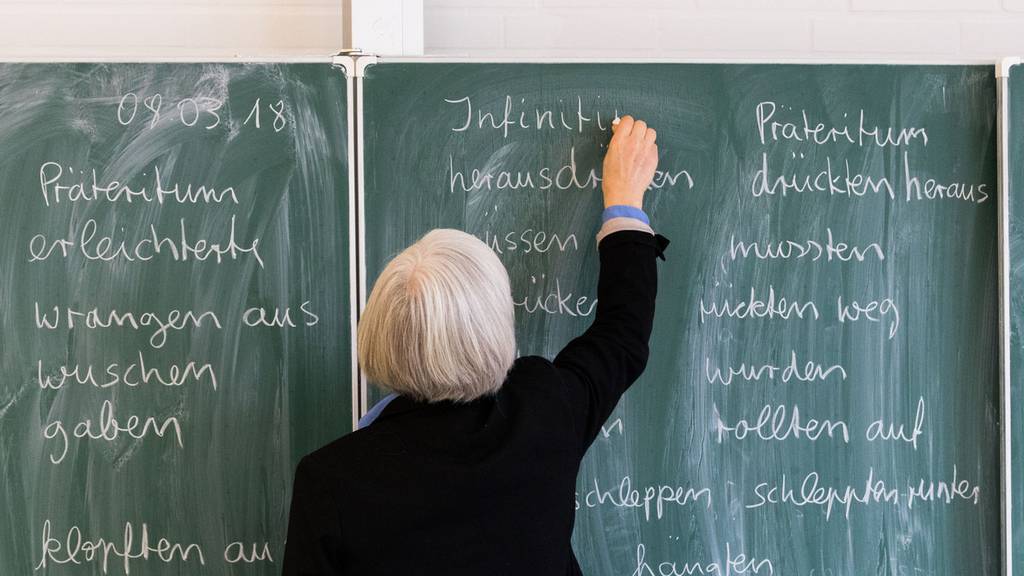 08 03 18
Präteritum
erleichterte
wrangen aus
wuschen
gaben
klopften au
Infiniti
herausdrücken
üssen
rücken
n
schleppen
hängten
Präteritum
drückten heraus
mussten
rückten weg
wurden
rollten auf
schleppten runter